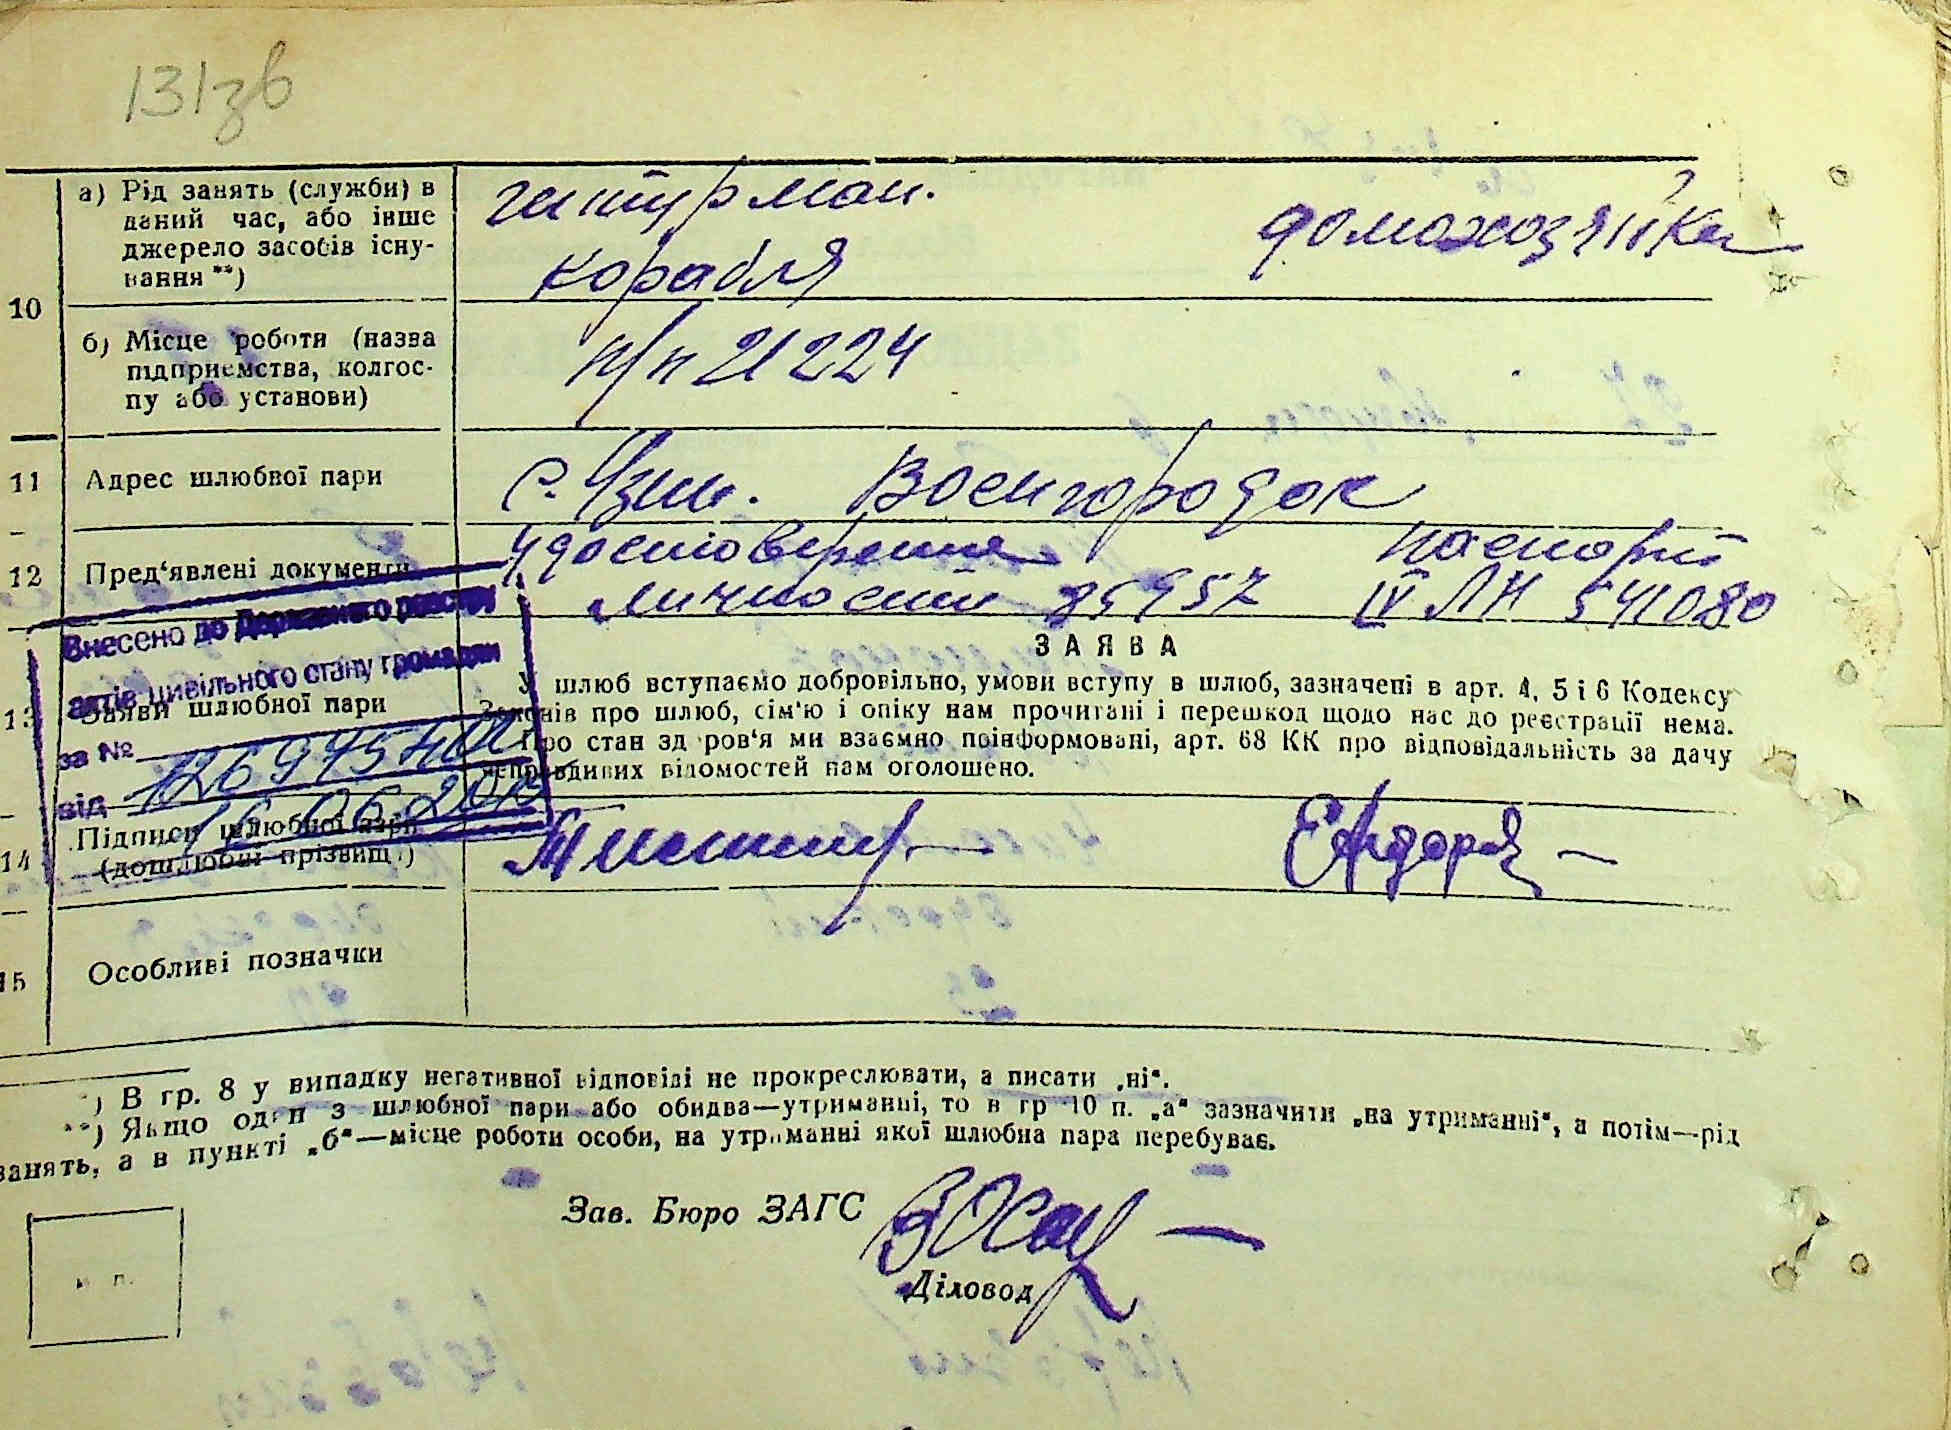 131зв
10
а) Рід занять (служби) в
даний час, або інше
джерело засобів існу-
вання **)
штурман.
корабля
домохозяйка
б) Місце роботи (назва
підприємства, колгос-
пу або установи)
п/п 21224
11
Адрес шлюбної пари
с. Узин. Военгородок
12
Пред'явлені документи
удостоверение
личности
паспорт
IV ЛН 541080
Внесено до Державного реєстру
актів цивільного стану громадян
за №
від
13
Заяви шлюбної пари
ЗАЯВА
У шлюб вступаємо добровільно, умови вступу в шлюб, зазначені в арт. 4, 5 і 6 Кодексу
Законів про шлюб, сім'ю і опіку нам прочитані і перешкод щодо нас до реєстрації нема.
Про стан здоров'я ми взаємно поінформовані, арт. 68 КК про відповідальність за дачу
неправдивих відомостей нам оголошено.
14
Підписи шлюбної пари
(дошлюбні прізвищ)
15
Особливі позначки
*) В гр. 8 у випадку негативної відповіді не прокреслювати, а писати „ні“.
**) Якщо один з шлюбної пари або обидва—утриманці, то в гр 10 п. „а“ зазначити „на утриманні“, а потім—рід
занять, а в пункті „б“—місце роботи особи, на утриманні якої шлюбна пара перебуває.
Зав. Бюро ЗАГС
Діловод
м. п.